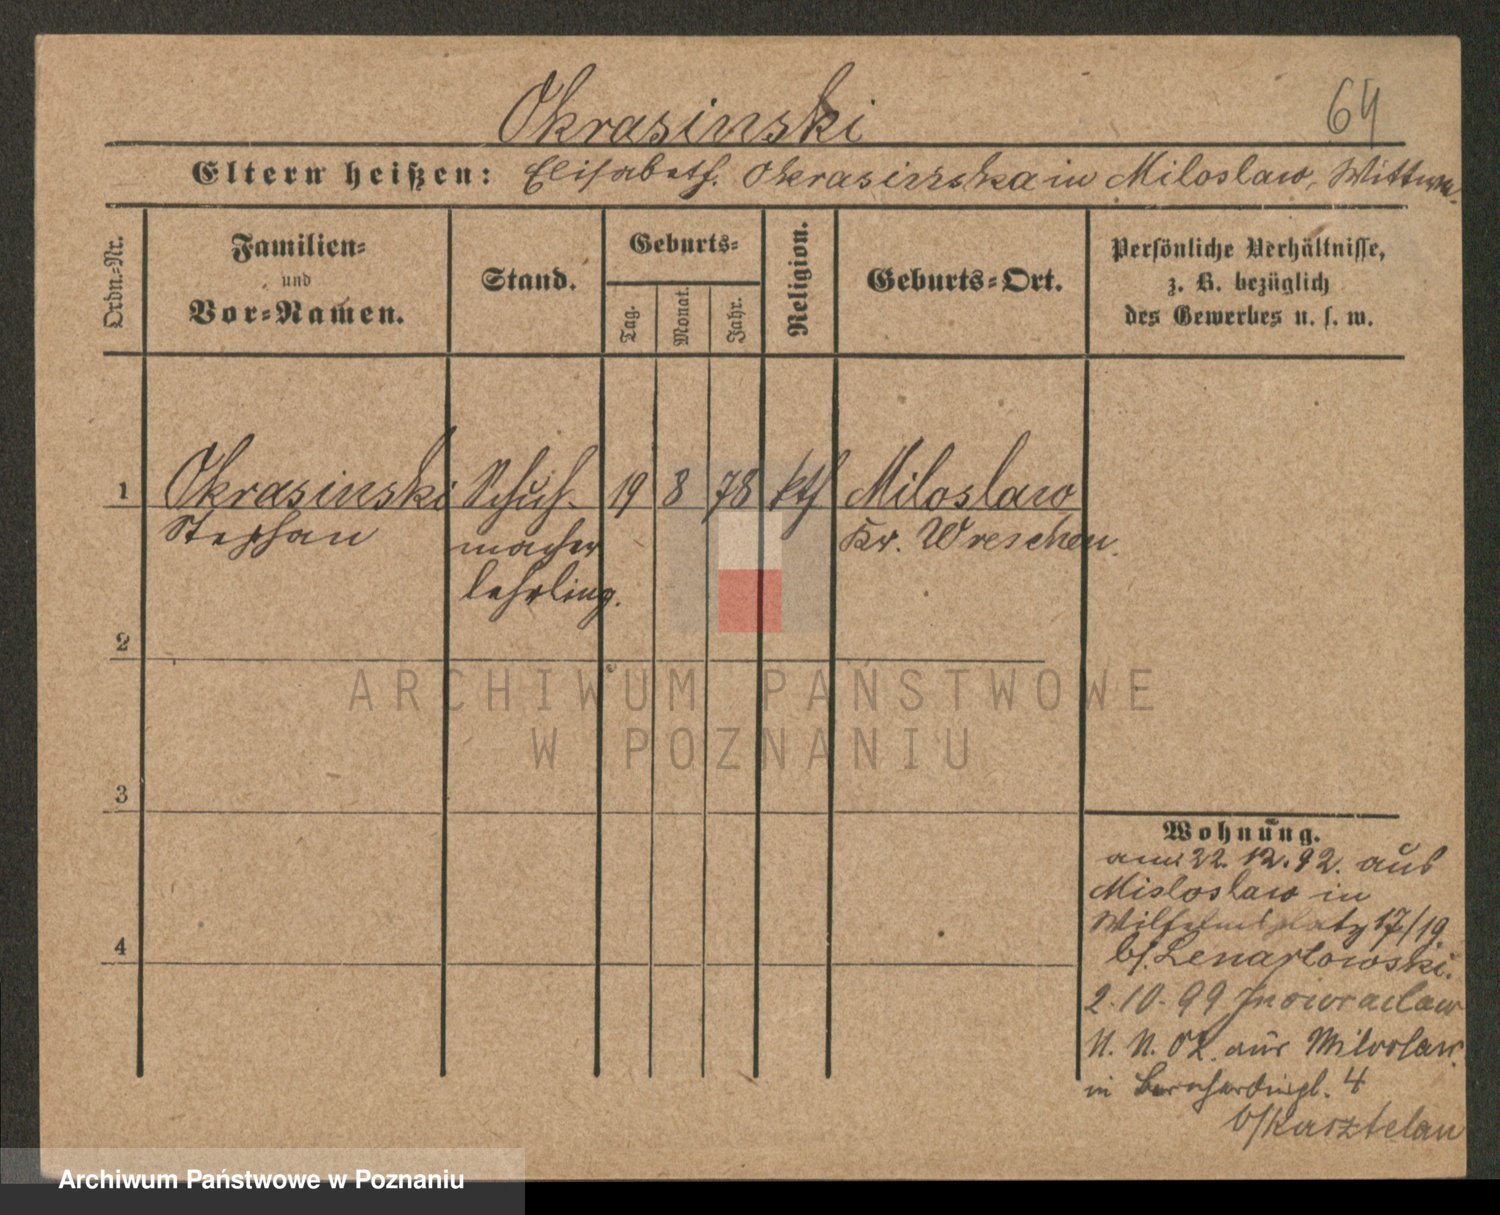 Okrasinski
64
Eltern heißen: Elisabeth Okrasinska in Miloslaw, Wittwe.
Ordn.-Nr.
Familien-
und
Vor-Namen.
Stand.
Geburts-
Tag.
Monat.
Jahr.
Religion.
Geburts-Ort.
Persönliche Verhältnisse,
z. B. bezüglich
des Gewerbes u. s. w.
1 Okrasinski Schuh- 19 8 78 kth Miloslaw
Stephan macher Kr. Wreschen.
lehrling.
2
3
4
Wohnung.
am 22. 12. 92. aus
Misloslaw in
Wilhelmsplatz 17/19
b/. Lenartowski.
2. 10. 99 Inowraclaw
11. 11. 02. aus Miloslaw
in Bernhardinpl. 4
b/Kasztelan
ARCHIWUM PAŃSTWOWE
W POZNANIU
Archiwum Państwowe w Poznaniu